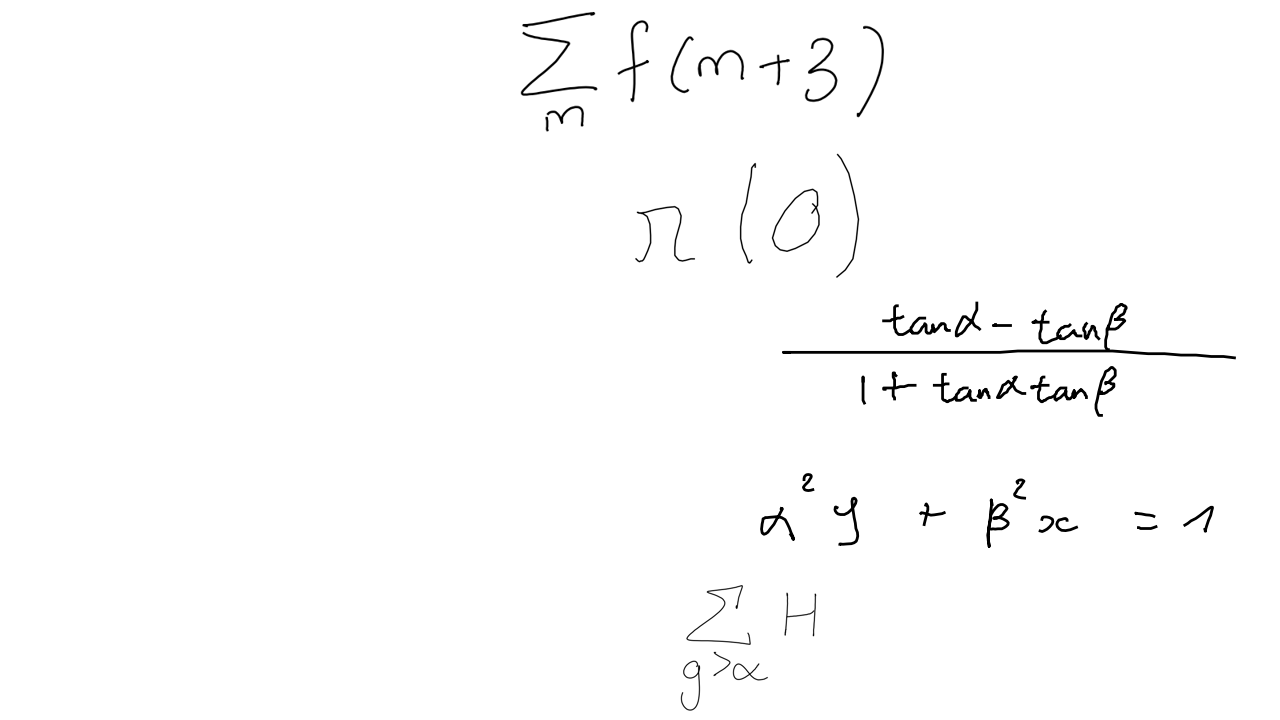 \sum_{m} f(m+3)
π(0)
\frac{\tan\alpha - \tan\beta}{1 + \tan\alpha \tan\beta}
\alpha^2 y + \beta^2 x = 1
\sum_{g>\alpha} H